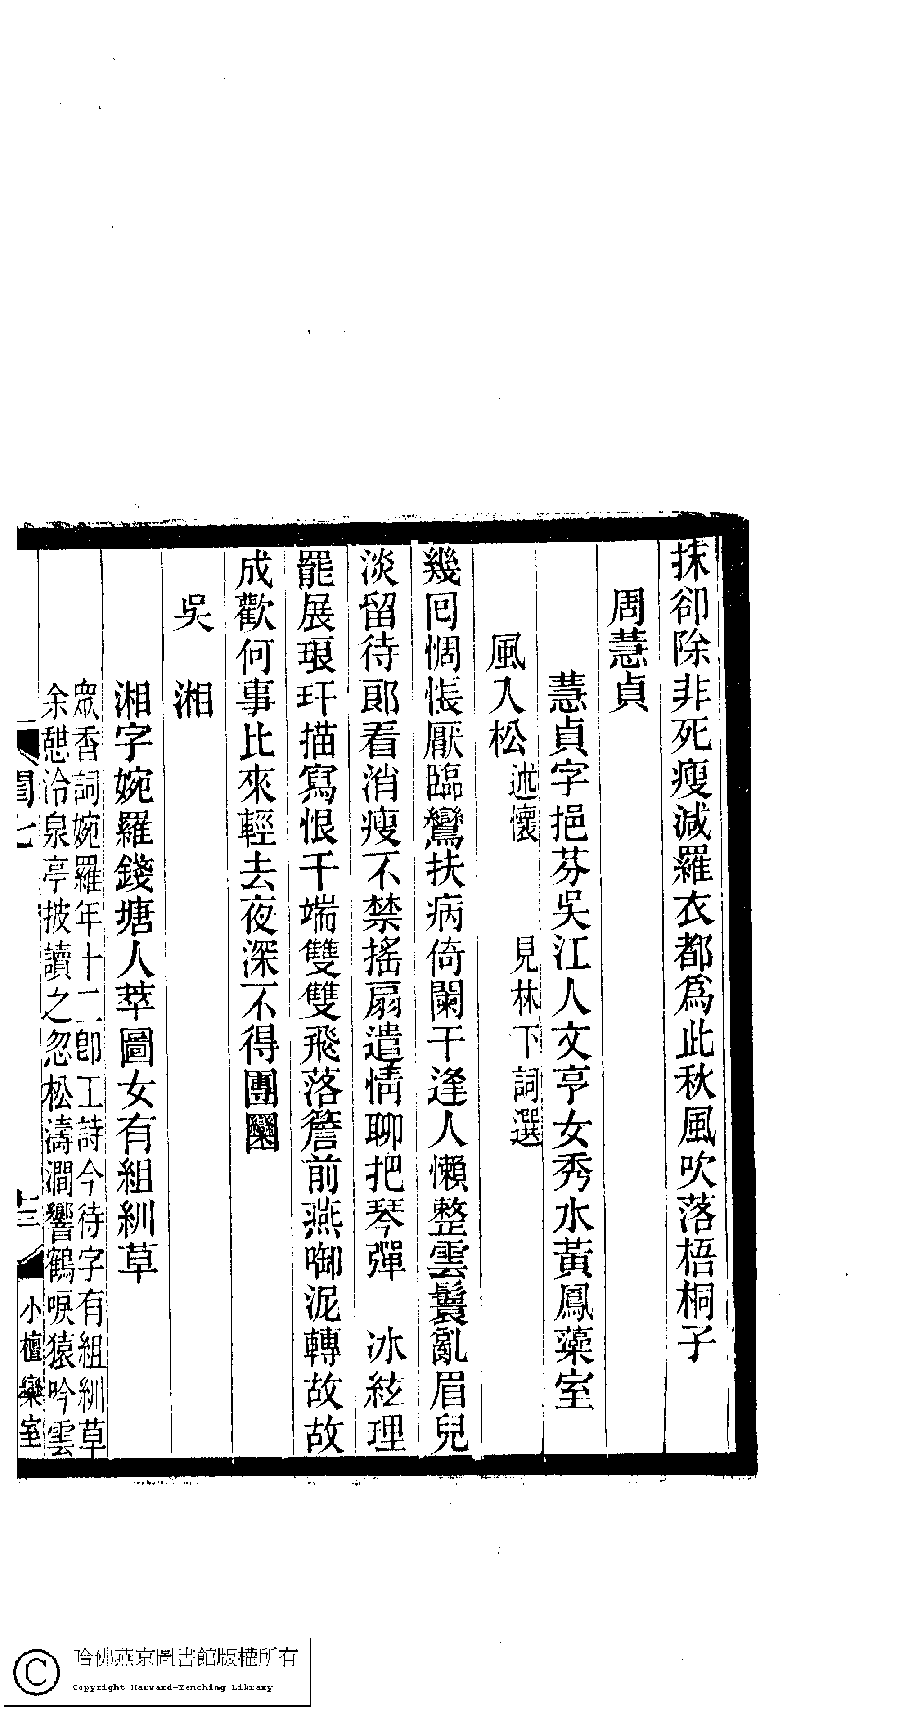 抹卻除非死瘦減羅衣都爲此秋風吹落梧桐子
周慧貞
慧貞字挹芬吳江人文亨女秀水黃鳳藻室
風入松述懷 見林下詞選
幾回惆悵厭臨鸞扶病倚闌干逢人懶整雲鬟亂眉兒
淡留待郎看消瘦不禁搖扇遣情聊把琴彈 冰絃理
罷展琅玕描寫恨千端雙雙飛落簷前燕啣泥轉故故
成歡何事比來輕去夜深不得團圞
吳 湘
湘字婉羅錢塘人萃圖女有組紃草
衆香詞婉羅年十二卽工詩今待字有組紃草
余憩冷泉亭披讀之忽松濤澗響鶴唳猿吟雲
閨七
十三
小檀欒室
哈佛燕京圖書館版權所有
Copyright Harvard-Yenching Library